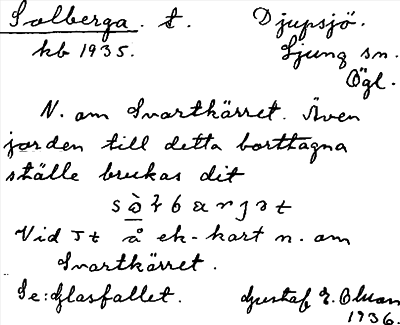 Solberga. t. Djupsjö.
kb 1935. Ljung sn.
Ögl.
N. om Svartkärret. Även
jorden till detta borttagna
ställe brukas dit
Vid Tt å ek-kart n. om
Svartkärret.
Se: Glasfallet. Gustaf E. Olson
1936.